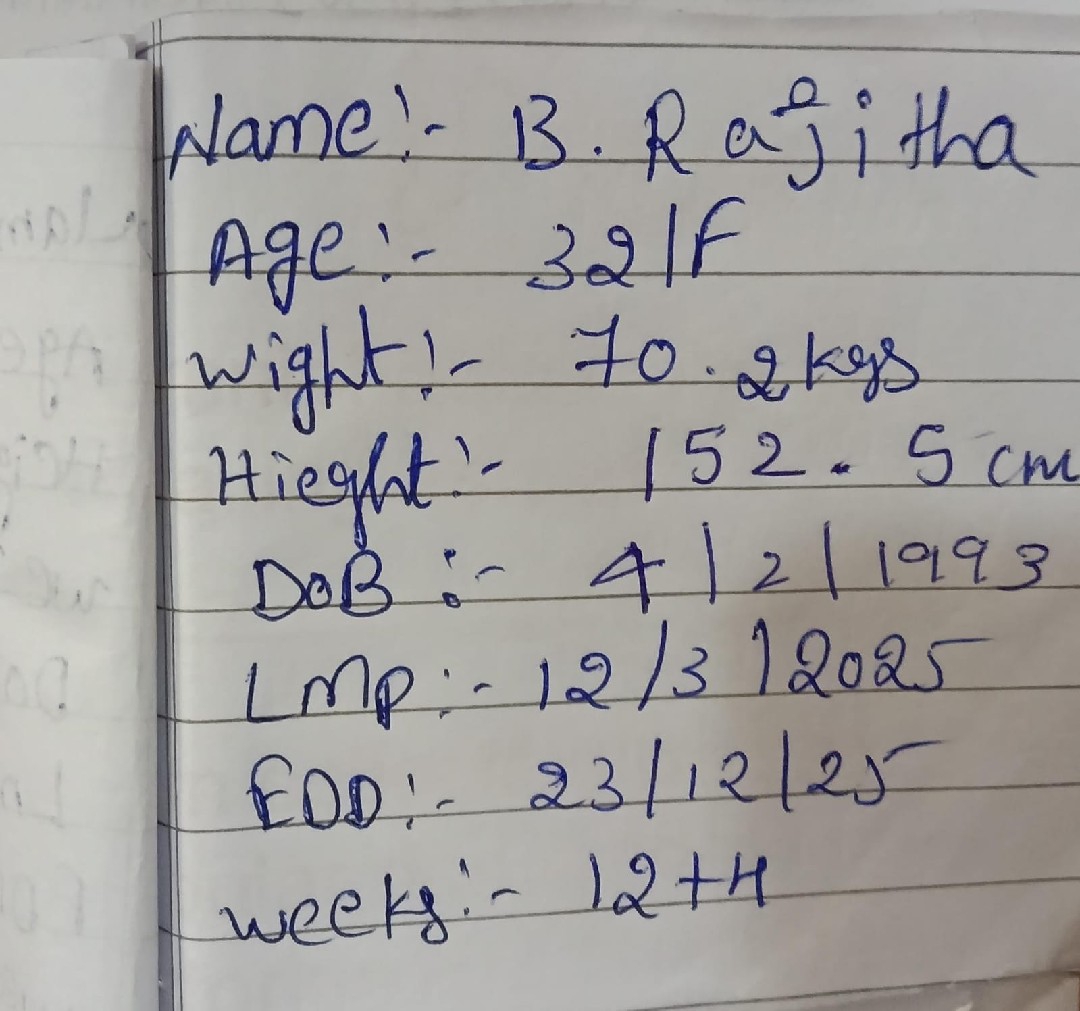 Name:- B. Rajitha
Age:- 32/F
Wight:- 70.2kgs
Hieght:- 152.5 cm
DoB:- 4/2/1993
LMP:- 12/3/2025
EDD:- 23/12/25
weeks:- 12+4